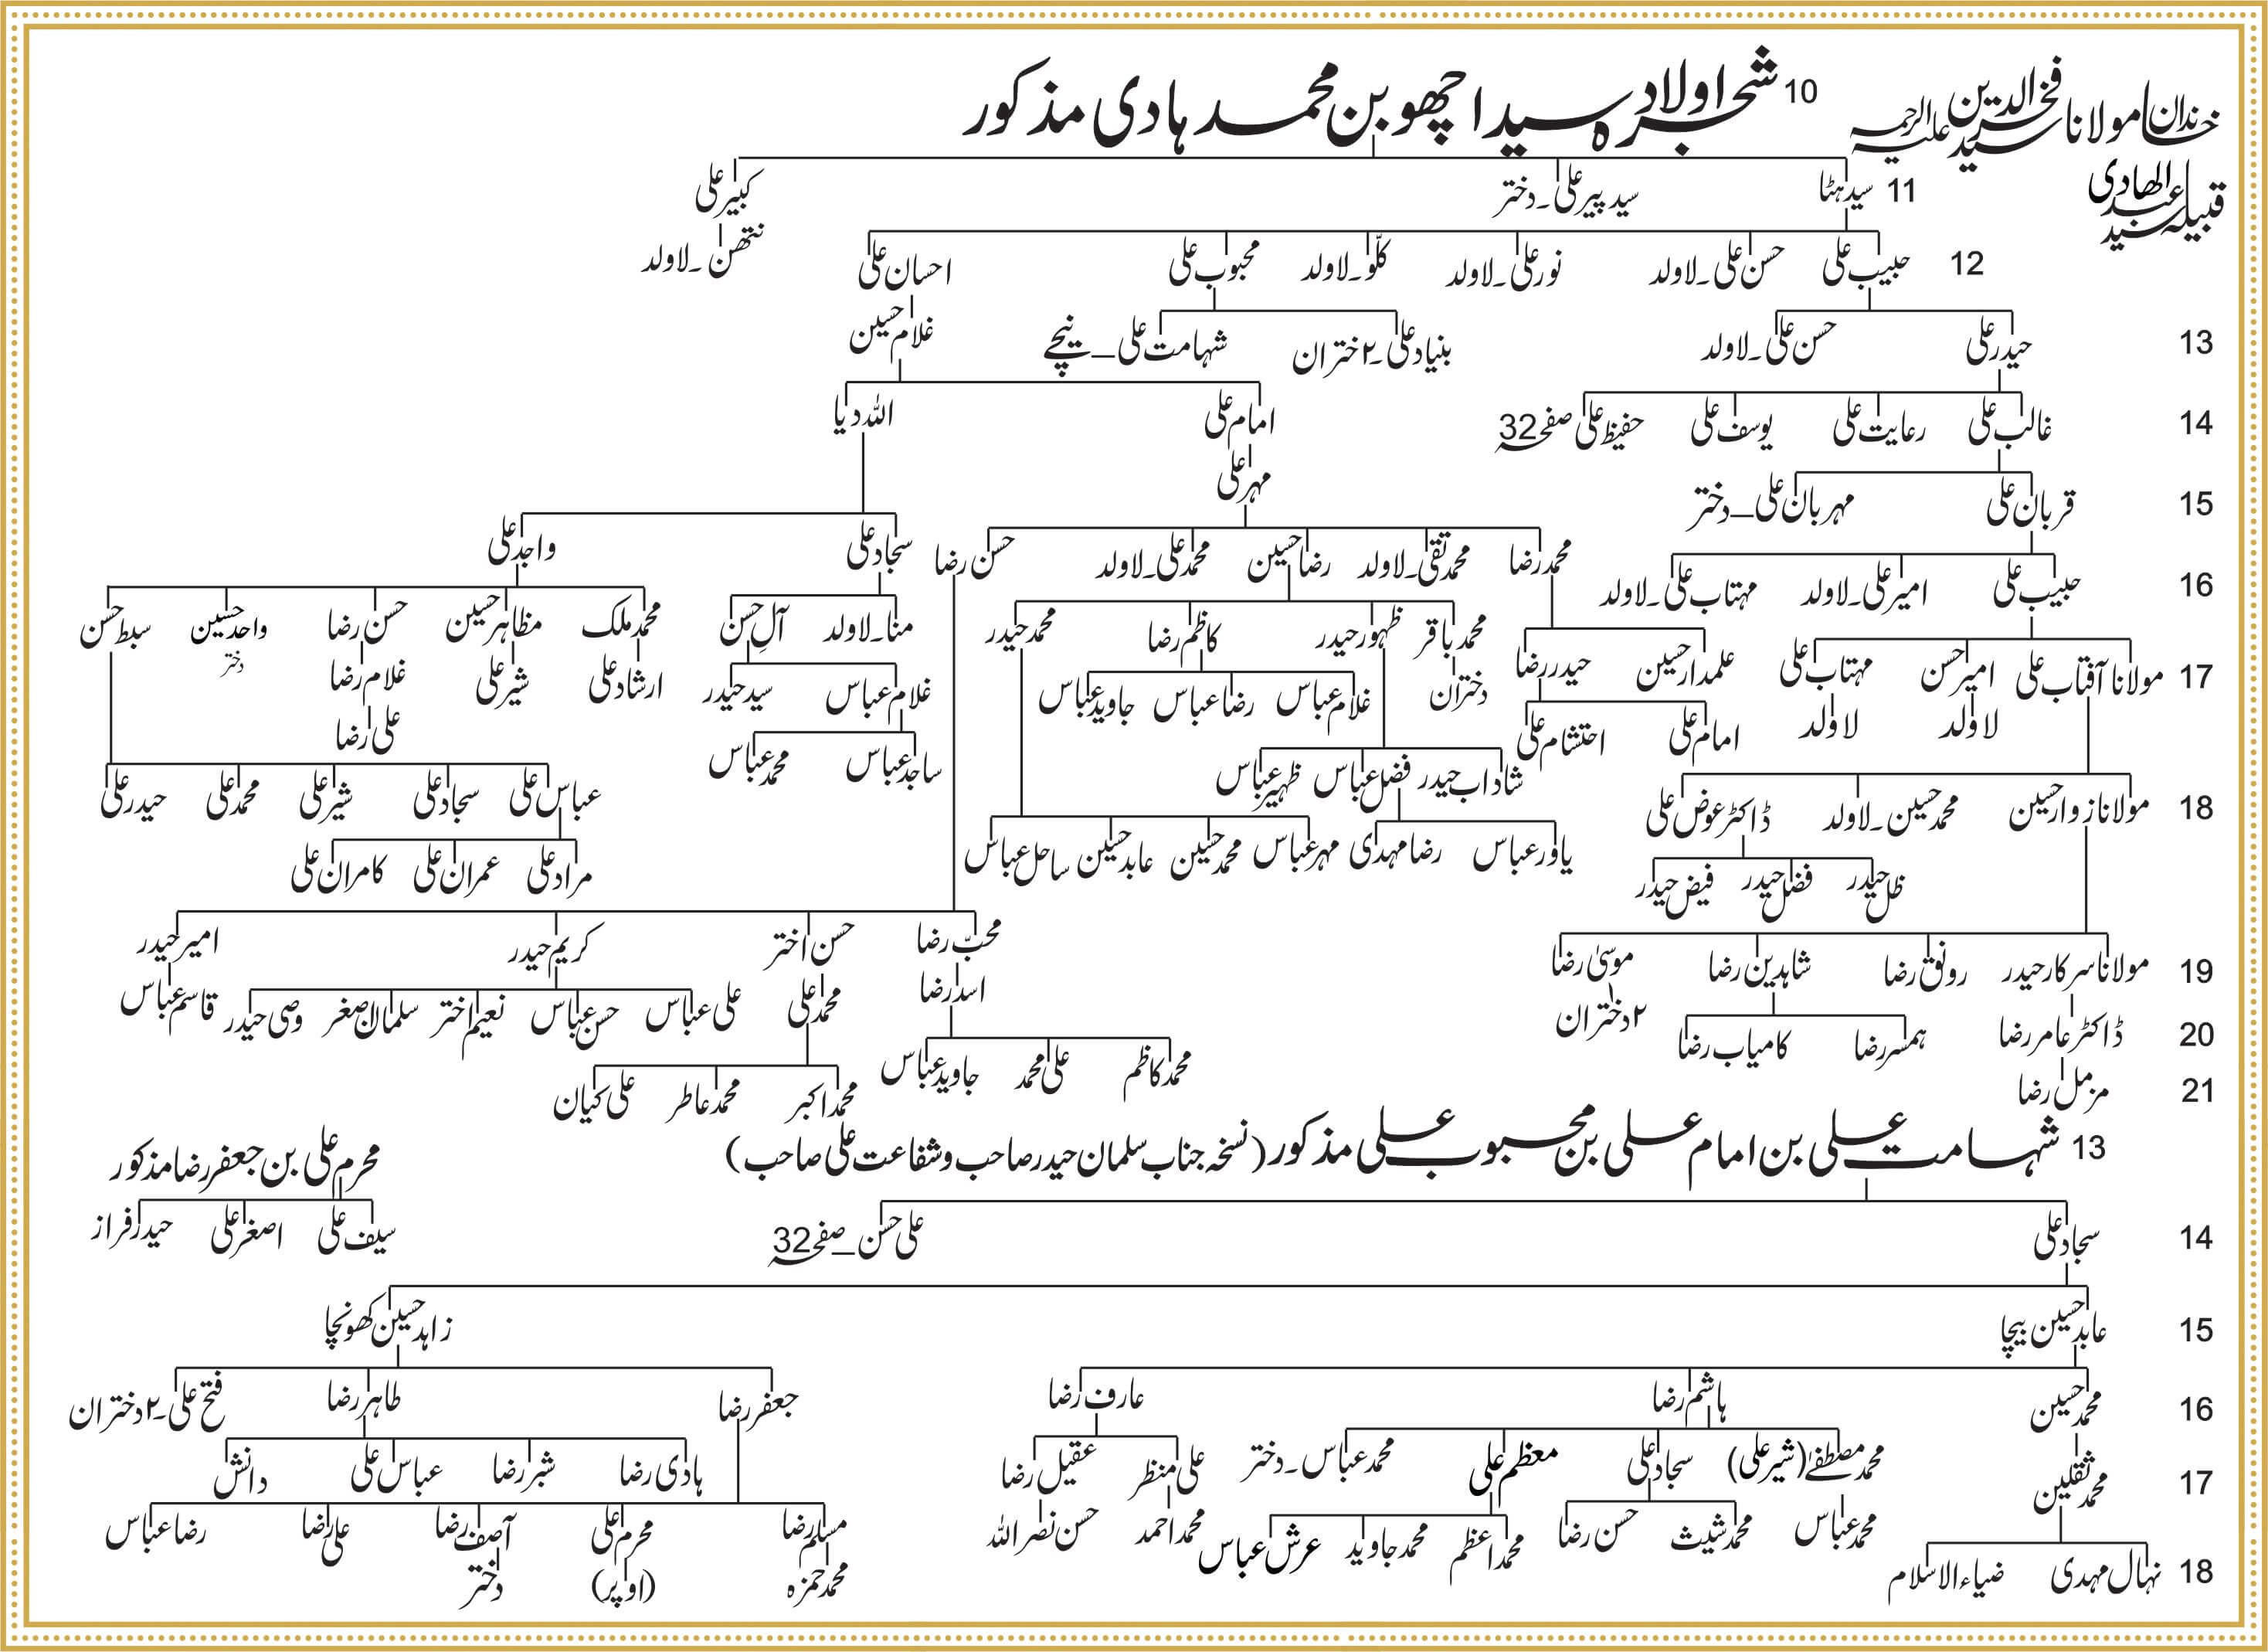 10 شجرہ اولاد سید اچھو بن محمد ہادی مذکور
خاندان مولانا سید فخرالدین علیہ الرحمہ
قبیلہ سید عبدالھادی
11 سید ہٹا سید پیر علی۔دختر کبیر علی
نتھن۔لاولد
12 حبیب علی حسن علی۔لاولد نور علی۔لاولد کلّو۔لاولد محبوب علی احسان علی
13 حیدر علی حسن علی۔لاولد بنیاد علی۔۲ختران شہامت علی_نیچے غلام حسین
14 غالب علی رعایت علی یوسف علی حفیظ علی صفحہ 32 امام علی اللہ دیا
مہر علی
15 قربان علی مہربان علی_دختر
محمد رضا محمد تقی۔لاولد رضا حسین محمد علی۔لاولد حسن رضا سجاد علی واجد علی
16 حبیب علی امیر علی۔لاولد مہتاب علی۔لاولد
محمد باقر ظہور حیدر کاظم رضا محمد حیدر منا۔لاولد آلِ حسن محمد ملک مظاہر حسین حسن رضا واحد حسین سبط حسن
دختر
17 مولانا آفتاب علی امیر حسن مہتاب علی علمدار حسین حیدر رضا دختران غلام عباس رضا عباس جاوید عباس غلام عباس سید حیدر ارشاد علی شیر علی غلام رضا
لاولد لاولد امام علی احتشام علی علی رضا
شاداب حیدر فضل عباس ظہیر عباس ساجد عباس محمد عباس
18 مولانا زوار حسین محمد حسین۔لاولد ڈاکٹر عوض علی عباس علی سجاد علی شیر علی محمد علی حیدر علی
یاور عباس رضا مہدی مہر عباس محمد حسین عابد حسین ساحل عباس
ظل حیدر فضل حیدر فیض حیدر مراد علی عمران علی کامران علی
محبّ رضا حسن اختر کریم حیدر امیر حیدر
19 مولانا سرکار حیدر رونق رضا شاہدین رضا موسیٰ رضا
اسد رضا محمد علی علی عباس حسن عباس نعیم اختر سلمان اصغر وصی حیدر قاسم عباس
20 ڈاکٹر عامر رضا ہمسر رضا کامیاب رضا ۲دختران
محمد کاظم علی محمد جاوید عباس
21 مزمل رضا محمد اکبر محمد عاطر علی کیان
13 شہامت علی بن امام علی بن محبوب علی مذکور (نسخہ جناب سلمان حیدر صاحب و شفاعت علی صاحب)
محرم علی بن جعفر رضا مذکور
سیف علی اصغر علی حیدر فراز
14 سجاد علی علی حسن_صفحہ 32
15 عابد حسین بیچا زاہد حسین کھونچا
16 محمد حسین ہاشم رضا عارف رضا جعفر رضا طاہر رضا فتح علی۔۲دختران
17 محمد ثقلین محمد مصطفےٰ (شیر علی) سجاد علی معظم علی محمد عباس۔دختر علی منظر عقیل رضا ہادی رضا شبر رضا عباس علی دانش
محمد عباس محمد شیث حسن رضا محمد اعظم محمد جاوید عرش عباس محمد احمد حسن نصراللہ مسلم رضا محرم علی آصف رضا علی رضا رضا عباس
18 نہال مہدی ضیاء الاسلام محمد حمزہ (اوپر) دختر